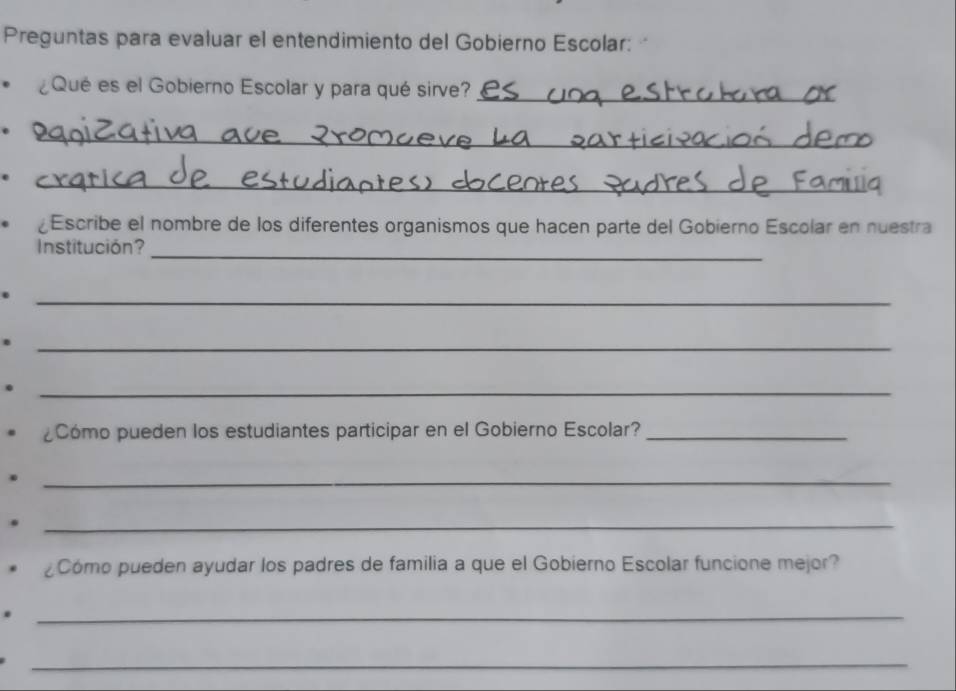 Preguntas para evaluar el entendimiento del Gobierno Escolar:
• ¿Qué es el Gobierno Escolar y para qué sirve? es una estrutura or
• ganizativa que promueve La participación demo
• cratica de estudiantes, docentes padres de Familia
• ¿Escribe el nombre de los diferentes organismos que hacen parte del Gobierno Escolar en nuestra
Institución?
• ¿Cómo pueden los estudiantes participar en el Gobierno Escolar?
• ¿Cómo pueden ayudar los padres de familia a que el Gobierno Escolar funcione mejor?